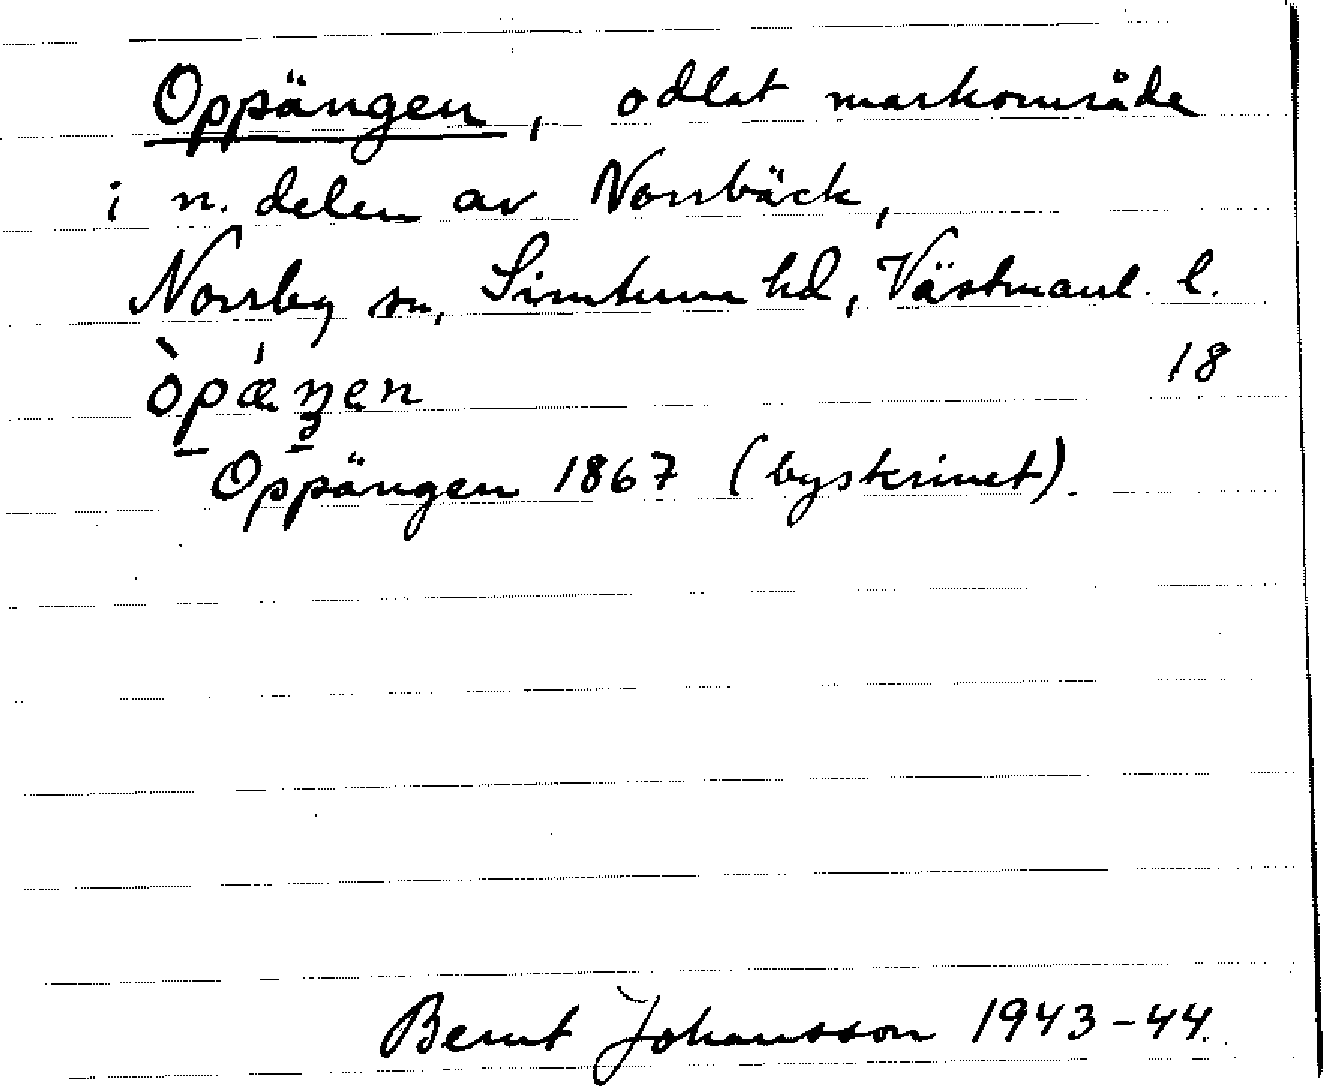 Oppängen, odlat markområde
i n. delen av Norrbäck,
Norrby sn, Simtuna hd, Västmanl. l.
òpæ̀ŋen 18
Oppängen 1867 (byskrinet).
Bernt Johansson 1943-44.